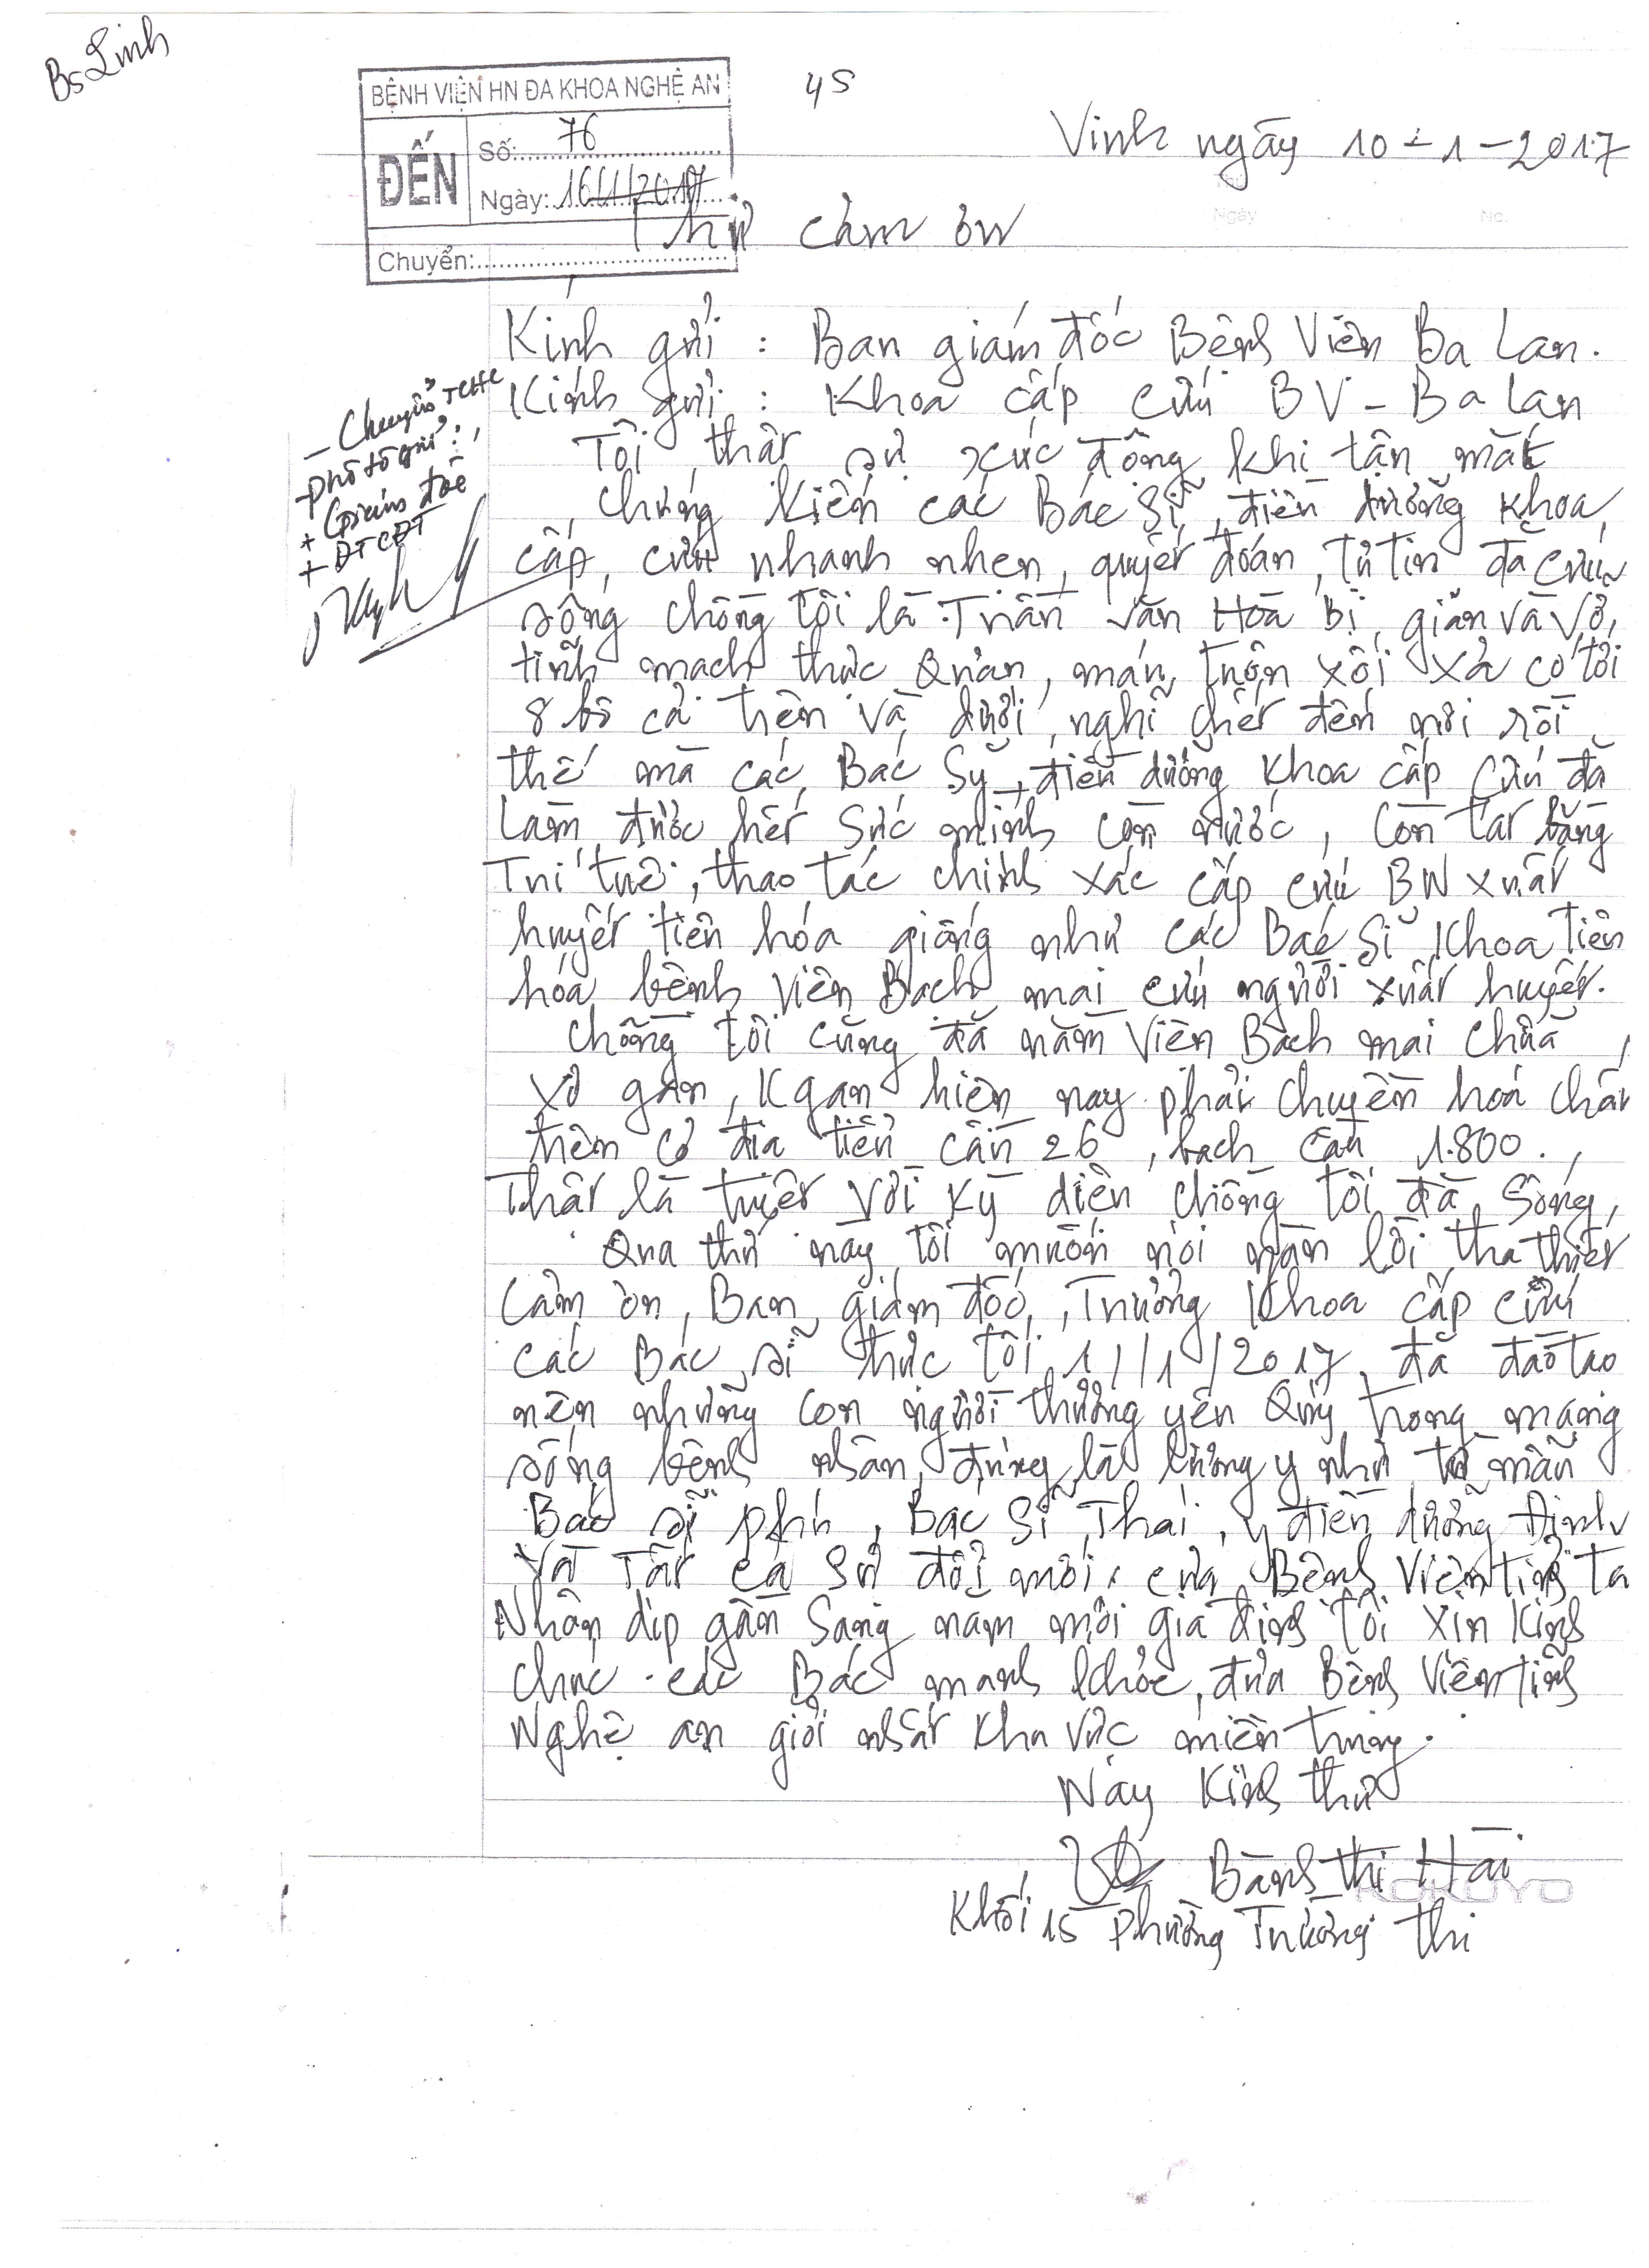 Bs Linh
BỆNH VIỆN HN ĐA KHOA NGHỆ AN
ĐẾN
Số: 76
Ngày: 16/1/2017
Chuyển:
45
Vinh ngày 10-1-2017
Ngày No.
Thư cảm ơn
Kính gửi : Ban giám đốc Bệnh Viện Ba Lan.
Kính gửi : Khoa cấp cứu BV - Ba Lan
- Chuyển TCHC
- phô tô gửi:
+ Giám đốc
+ ĐTCĐT
Tôi thật sự xúc động khi tận mắt
chứng kiến các Bác Sĩ, điều dưỡng khoa
cấp cứu nhanh nhẹn, quyết đoán, tự tin đã cứu
sống chồng tôi là Trần Văn Hoà bị giãn và vỡ
tĩnh mạch thực quản, máu tuôn xối xả có tới
8 bô cả trên và dưới, nghĩ chết đến nơi rồi
thế mà các Bác Sỹ, điều dưỡng khoa cấp cứu đã
làm được hết sức mình còn nước, còn tát bằng
Trí tuệ, thao tác chính xác cấp cứu BN xuất
huyết tiêu hóa giống như các Bác Sĩ Khoa Tiêu
hóa bệnh viện Bạch mai cứu người xuất huyết.
Chồng tôi cũng đã nằm viện Bạch mai chữa
xơ gan, K gan hiện nay phải chuyền hoá chất
trên cơ địa tiểu cầu 26, bạch cầu 1.800.
Thật là tuyệt vời kỳ diệu chồng tôi đã sống,
Qua thư này tôi muốn nói ngàn lời tha thiết
Cảm ơn, Ban giám đốc, Trưởng Khoa cấp cứu
các Bác sĩ trực tối 1/1/2017 đã đào tạo
nên những con người thương yêu quý trọng mạng
sống bệnh nhân, đúng là lương y như từ mẫu
Bác sĩ Phú, Bác Sĩ Thái, y điều dưỡng Định
Và Tất cả sự đổi mới của Bệnh Viện tỉnh ta
Nhân dịp gần sang năm mới gia đình tôi xin kính
chúc các Bác mạnh khỏe, đưa Bệnh Viện tỉnh
Nghệ an giỏi nhất khu vực miền trung.
Nay Kính thư
Bành Thị Hải
KOKUYO
Khối 15 Phường Trường Thi